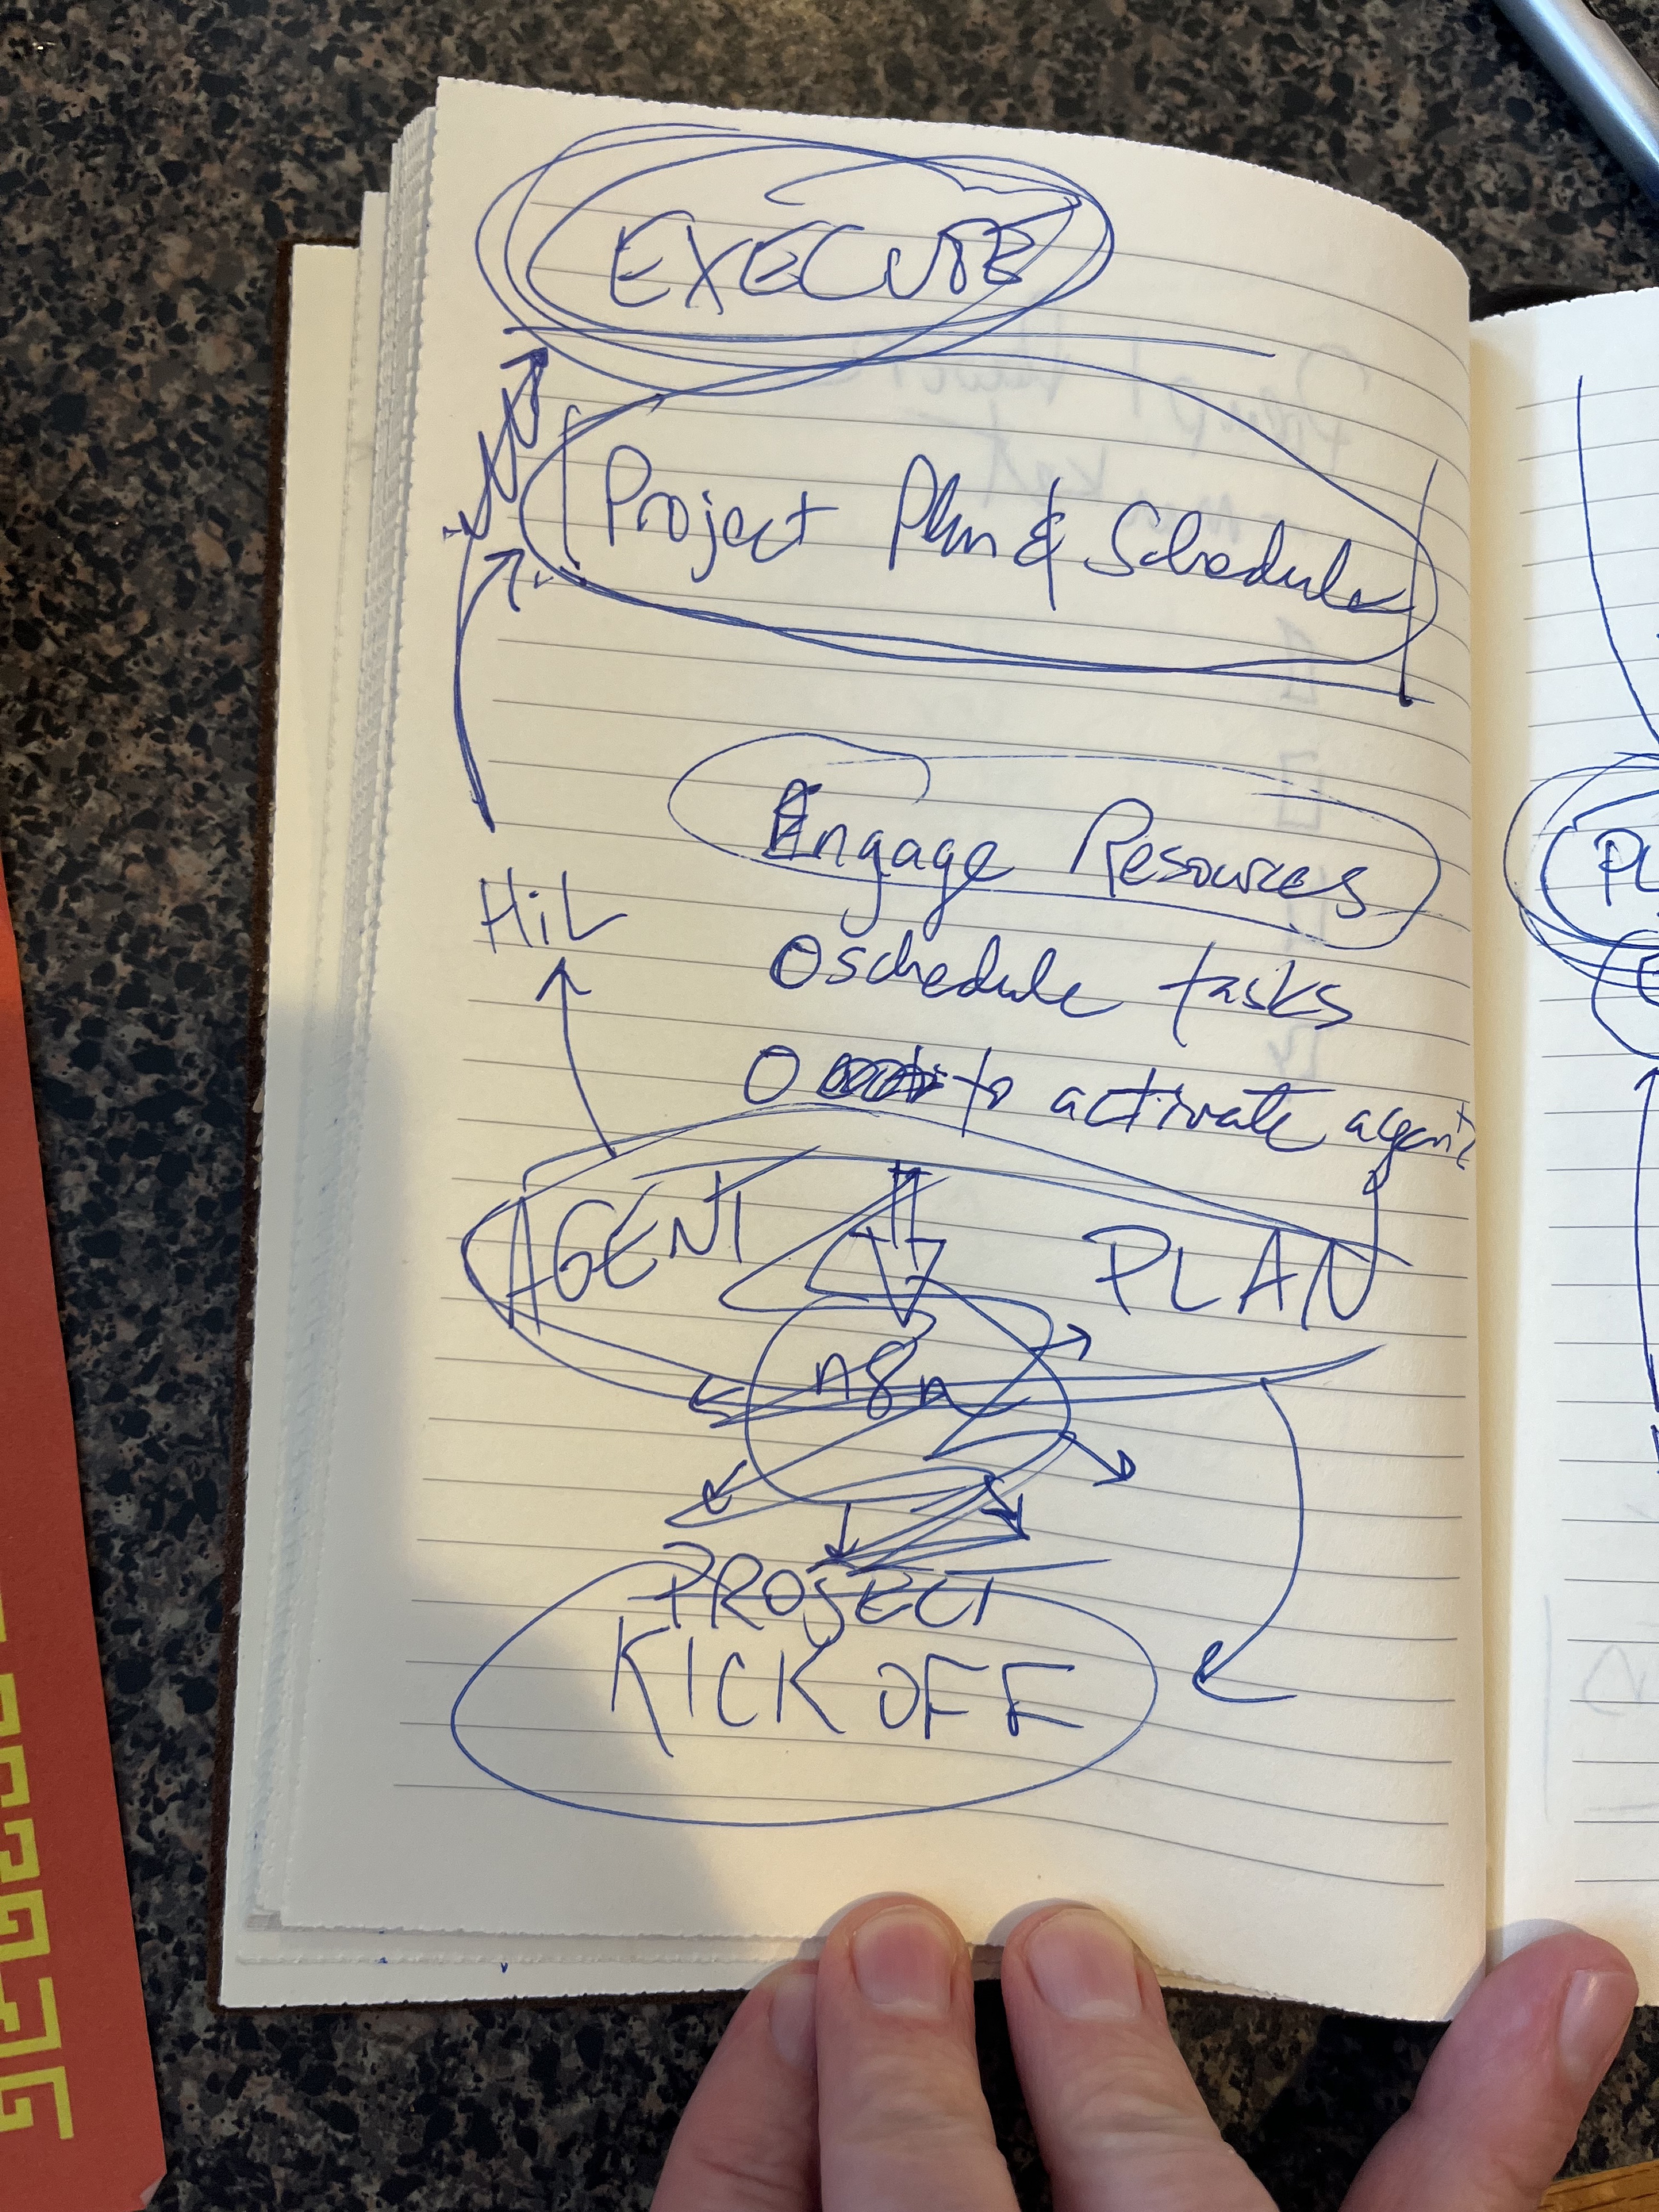 EXECUTE
Project Plan & Schedule
Engage Resources
HiL
O schedule tasks
O to activate agents
AGENT PLAN
n8n
PROJECT
KICK OFF
PL